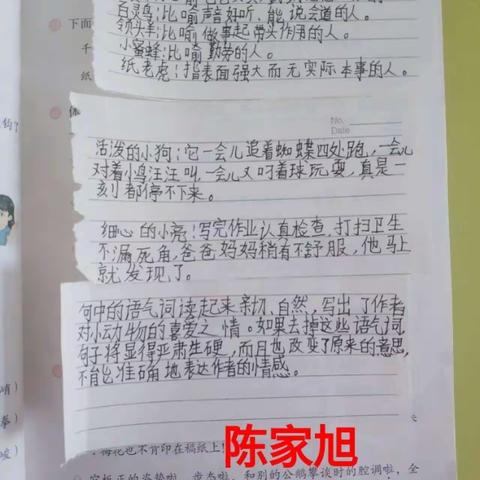 百灵鸟:比喻声音好听、能说会道的人。
领头羊:比喻做事起带头作用的人。
小蜜蜂:比喻勤劳的人。
纸老虎:指表面强大而无实际本事的人。
下面
千
纸
No.
Date
活泼的小狗:它一会儿追着蝴蝶四处跑,一会儿
对着小鸟汪汪叫,一会儿又叼着球玩耍,真是一
刻都停不下来。
细心的小亮:写完作业认真检查,打扫卫生
不漏死角,爸爸妈妈稍有不舒服,他马上
就发现了。
句中的语气词读起来亲切、自然,写出了作者
对小动物的喜爱之情。如果去掉这些语气词,
句子将显得严肃生硬,而且也改变了原来的意思,
不能准确地表达作者的情感。
梅花也不肯印在稿纸上
陈家旭
和别的公鹅攀谈时的腔调啦,全